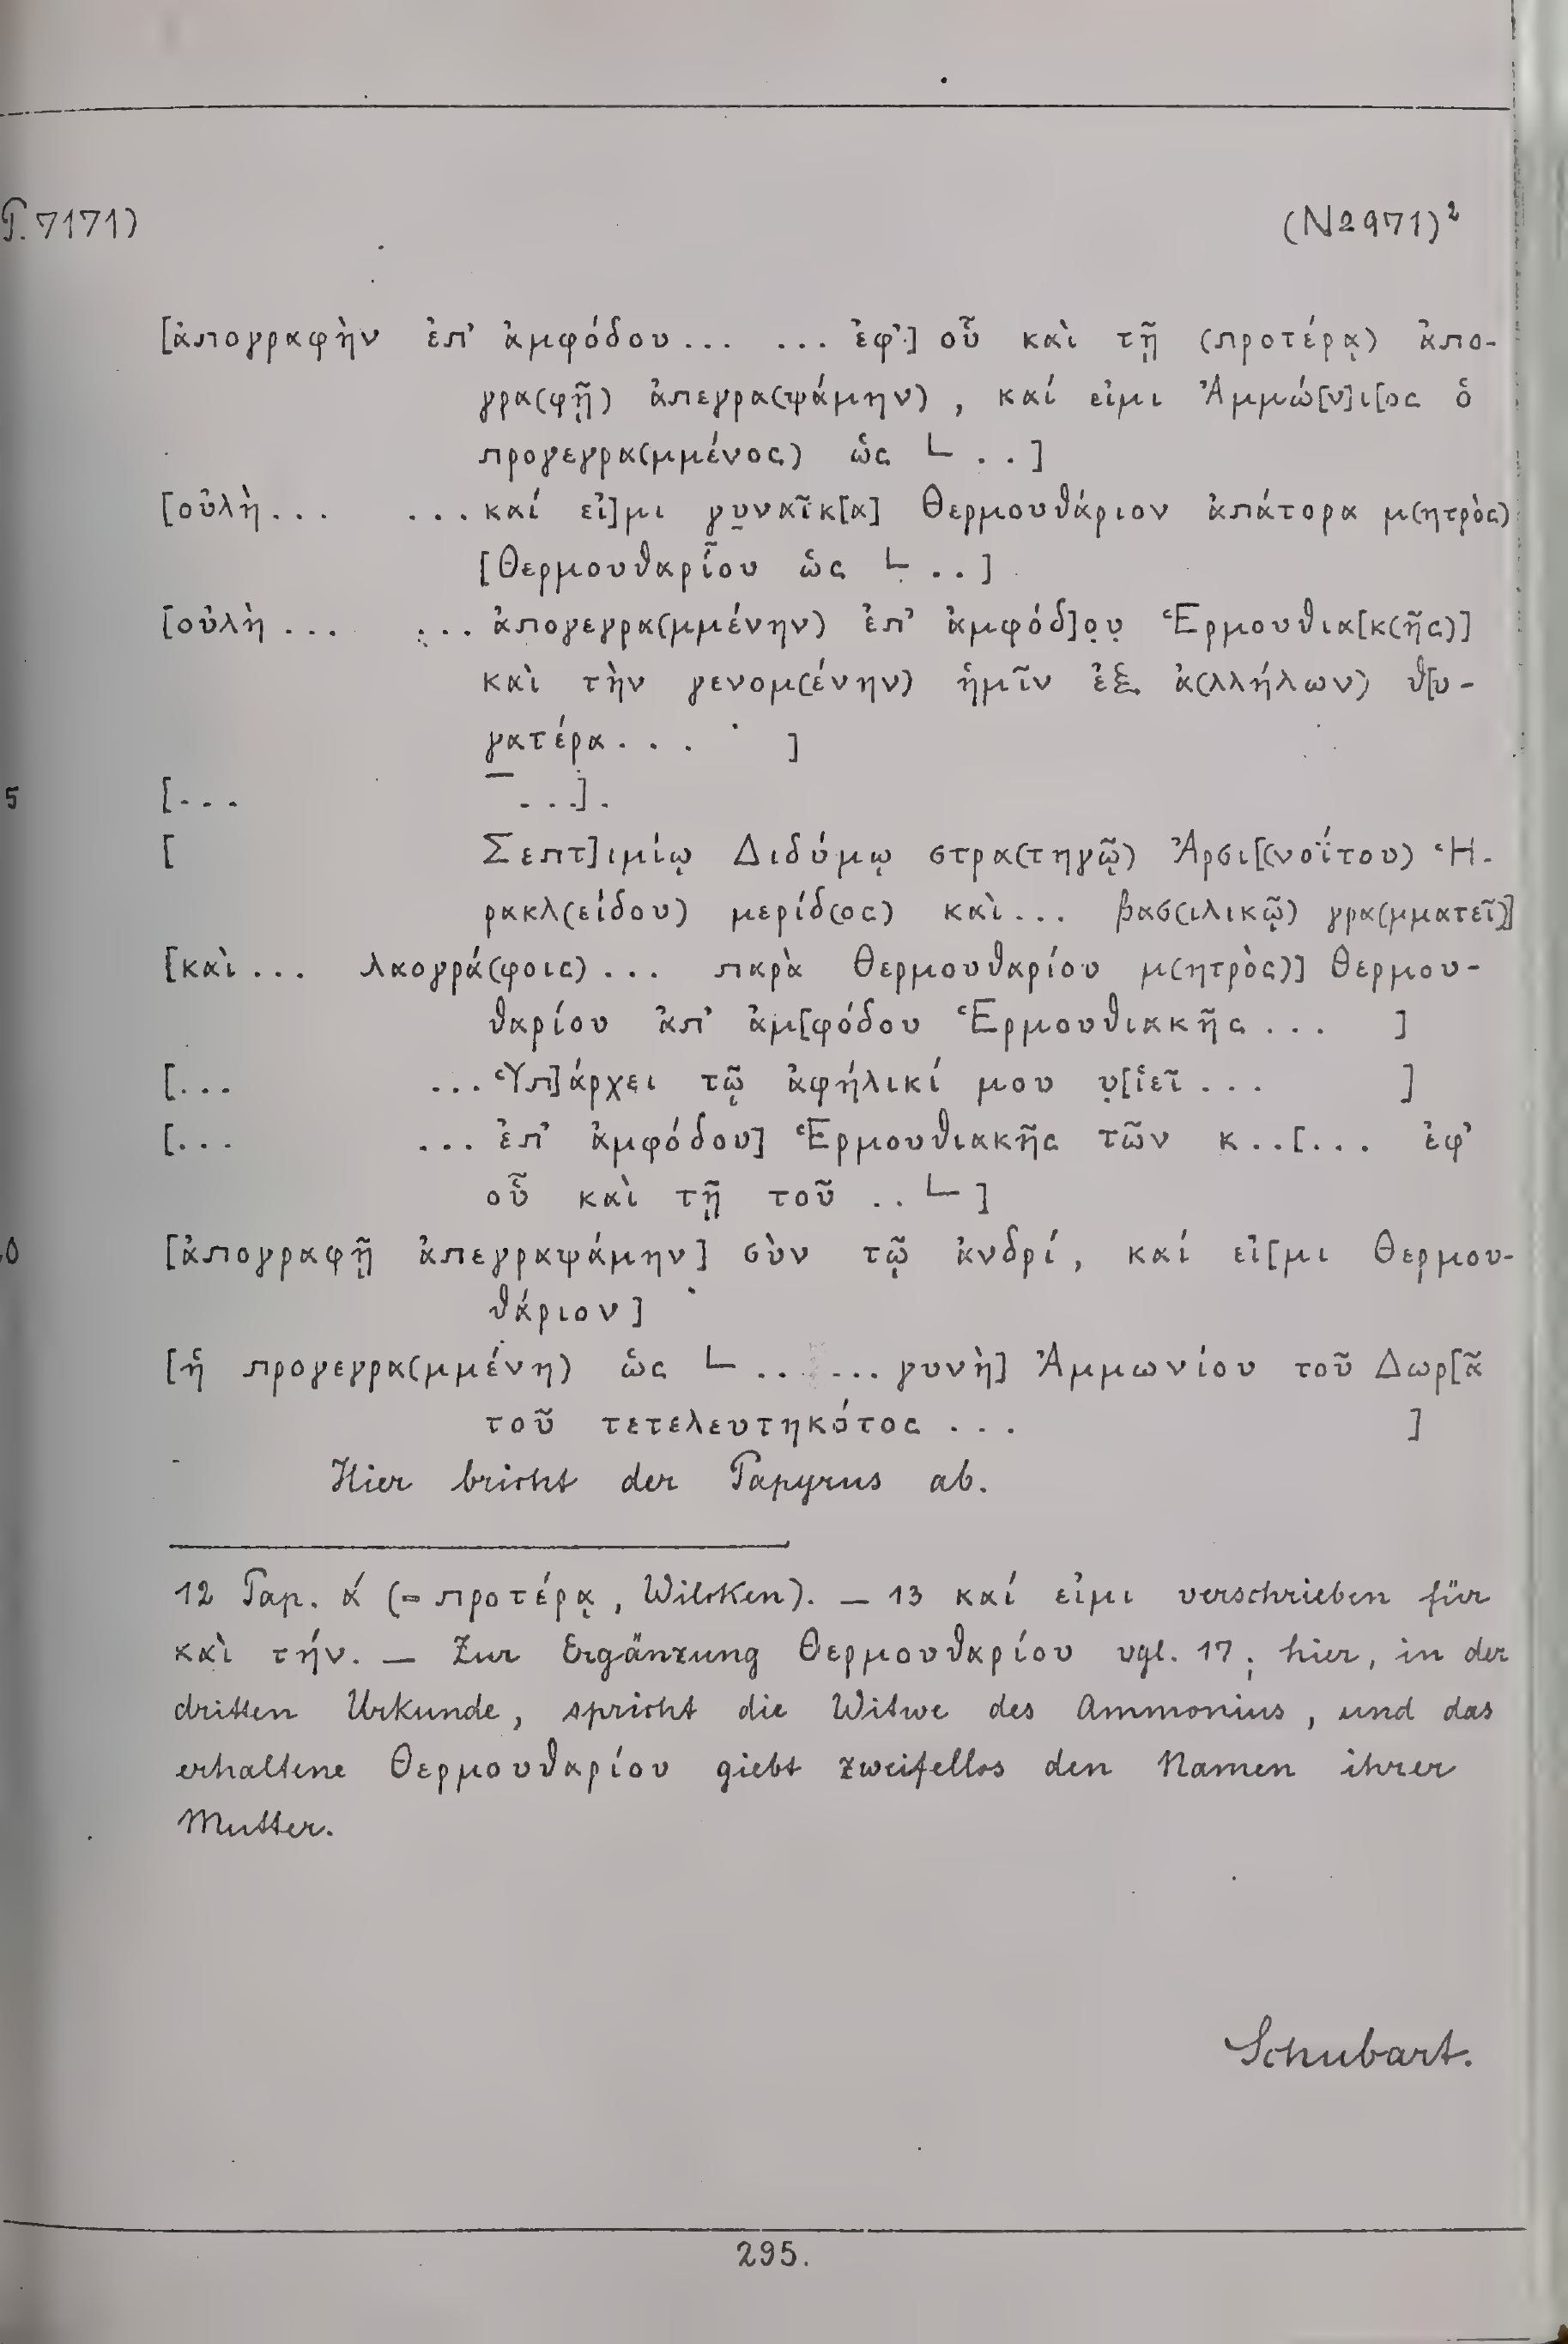 P. 7171) (N 2971)²
[ἀπογραφὴν ἐπ’ ἀμφόδου... ... ἐφ’] οὗ καὶ τῇ (προτέρᾳ) ἀπο-
γρα(φῇ) ἀπεγρα(ψάμην), καί εἰμι Ἀμμώ[ν]ι[ος ὁ
προγεγρα(μμένος) ὡς ∟ . . ]
[οὐλὴ... ...καί εἰ]μι γυ̣ναῖκ[α] Θερμουθάριον ἀπάτορα μ(ητρὸς)
[Θερμουθαρίου ὡς ∟ . . ]
[οὐλὴ ... ... ἀπογεγρα(μμένην) ἐπ’ ἀμφόδ]ο̣υ̣ Ἑρμουθια[κ(ῆς)]
καὶ τὴν γενομ(ένην) ἡμῖν ἐξ ἀ(λλήλων) θ[υ-
γατέρα . . . ]
5 [... ...].
[ Σεπτ]ιμίῳ Διδύμῳ στρα(τηγῷ) Ἀρσι[(νοΐτου) Ἡ-
ρακλ(είδου) μερίδ(ος) καὶ... βασ(ιλικῷ) γρα(μματεῖ)]
[καὶ ... λαογρά(φοις) ... παρὰ Θερμουθαρίου μ(ητρὸς)] Θερμου-
θαρίου ἀπ’ ἀμ[φόδου Ἑρμουθιακῆς ... ]
[... ... Ὑπ]άρχει τῷ ἀφήλικί μου υ̣[ἱεῖ ... ]
[... ... ἐπ’ ἀμφόδου] Ἑρμουθιακῆς τῶν κ..[... ἐφ’
οὗ καὶ τῇ τοῦ .. ∟ ]
0 [ἀπογραφῇ ἀπεγραψάμην] σὺν τῷ ἀνδρί, καί εἰ[μι Θερμου-
θάριον]
[ἡ προγεγρα(μμένη) ὡς ∟ .. ... γυνὴ] Ἀμμωνίου τοῦ Δωρ[ᾶ
τοῦ τετελευτηκότος ... ]
Hier bricht der Papyrus ab.
12 Pap. ά (= προτέρᾳ, Wilcken). — 13 καί εἰμι verschrieben für
καὶ τήν. — Zur Ergänzung Θερμουθαρίου vgl. 17; hier, in der
dritten Urkunde, spricht die Witwe des Ammonius, und das
erhaltene Θερμουθαρίου giebt zweifellos den Namen ihrer
Mutter.
Schubart.
295.